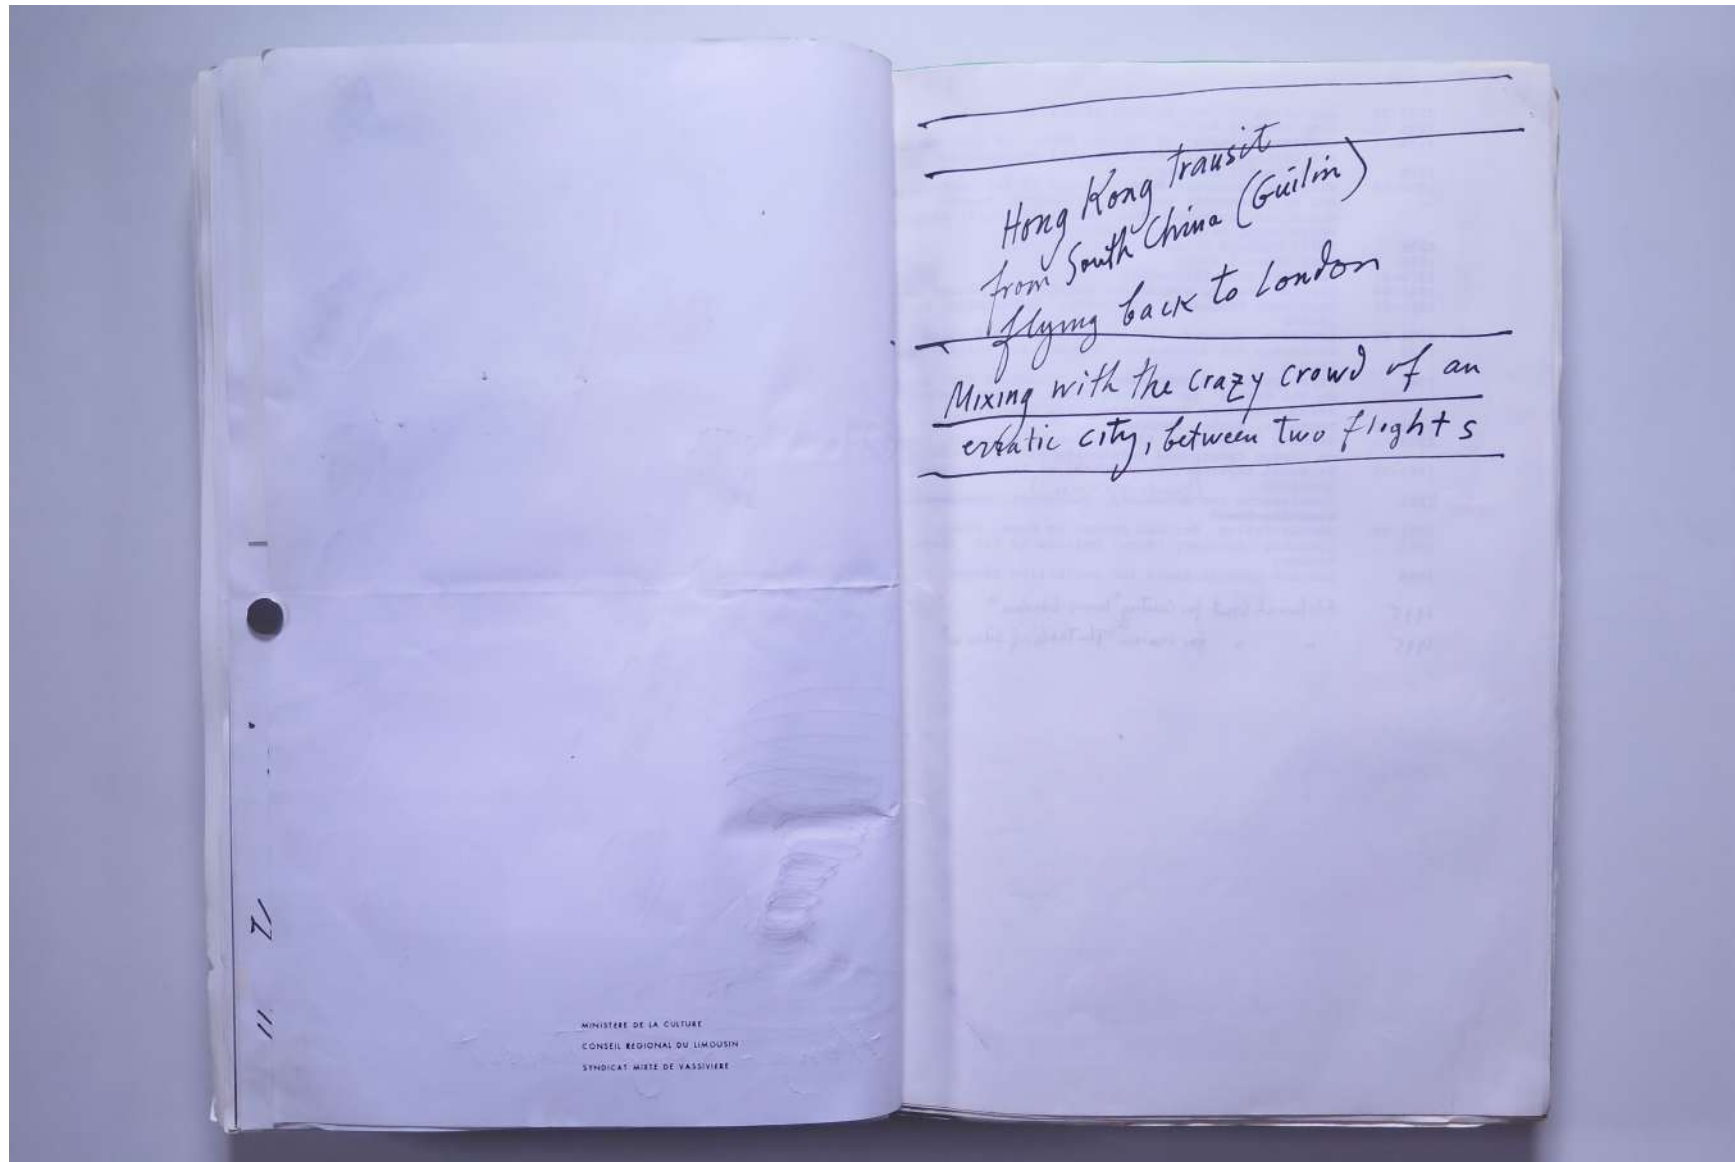 MINISTERE DE LA CULTURE
CONSEIL REGIONAL DU LIMOUSIN
SYNDICAT MIXTE DE VASSIVIERE
Hong Kong transit
from South China (Guilin)
flying back to London
Mixing with the crazy crowd of an
erratic city, between two flights